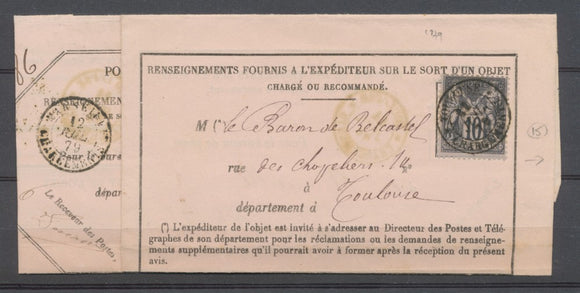 1879
86
PO
RENSEIGNEMEN
MARSEILLE
12
79
CHARGEMENTS
dépar
Le Receveur des Postes,
RENSEIGNEMENTS FOURNIS A L'EXPÉDITEUR SUR LE SORT D'UN OBJET
CHARGÉ OU RECOMMANDÉ.
10
CHARGEM
15
M le Baron de Belcastel
rue des 14
Toulouse
département à
(*) L'expéditeur de l'objet est invité à s'adresser au Directeur des Postes et Télé-
graphes de son département pour les réclamations ou les demandes de renseigne-
ments supplémentaires qu'il pourrait avoir à former après la réception du présent
avis.